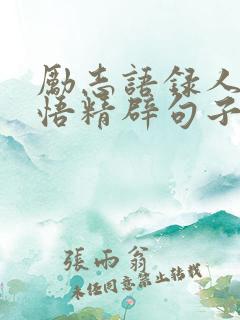 勵志語録人
悟精辟句子
張雨翁
未經同意禁止轉載